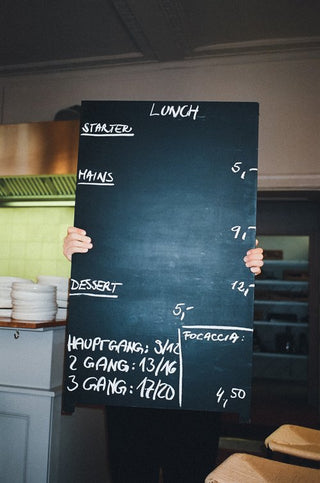 LUNCH
STARTER
5,-
MAINS
9,-
12,-
DESSERT
5,-
HAUPTGANG: 9/12
2 GANG: 13/16
3 GANG: 17/20
FOCACCIA:
4,50